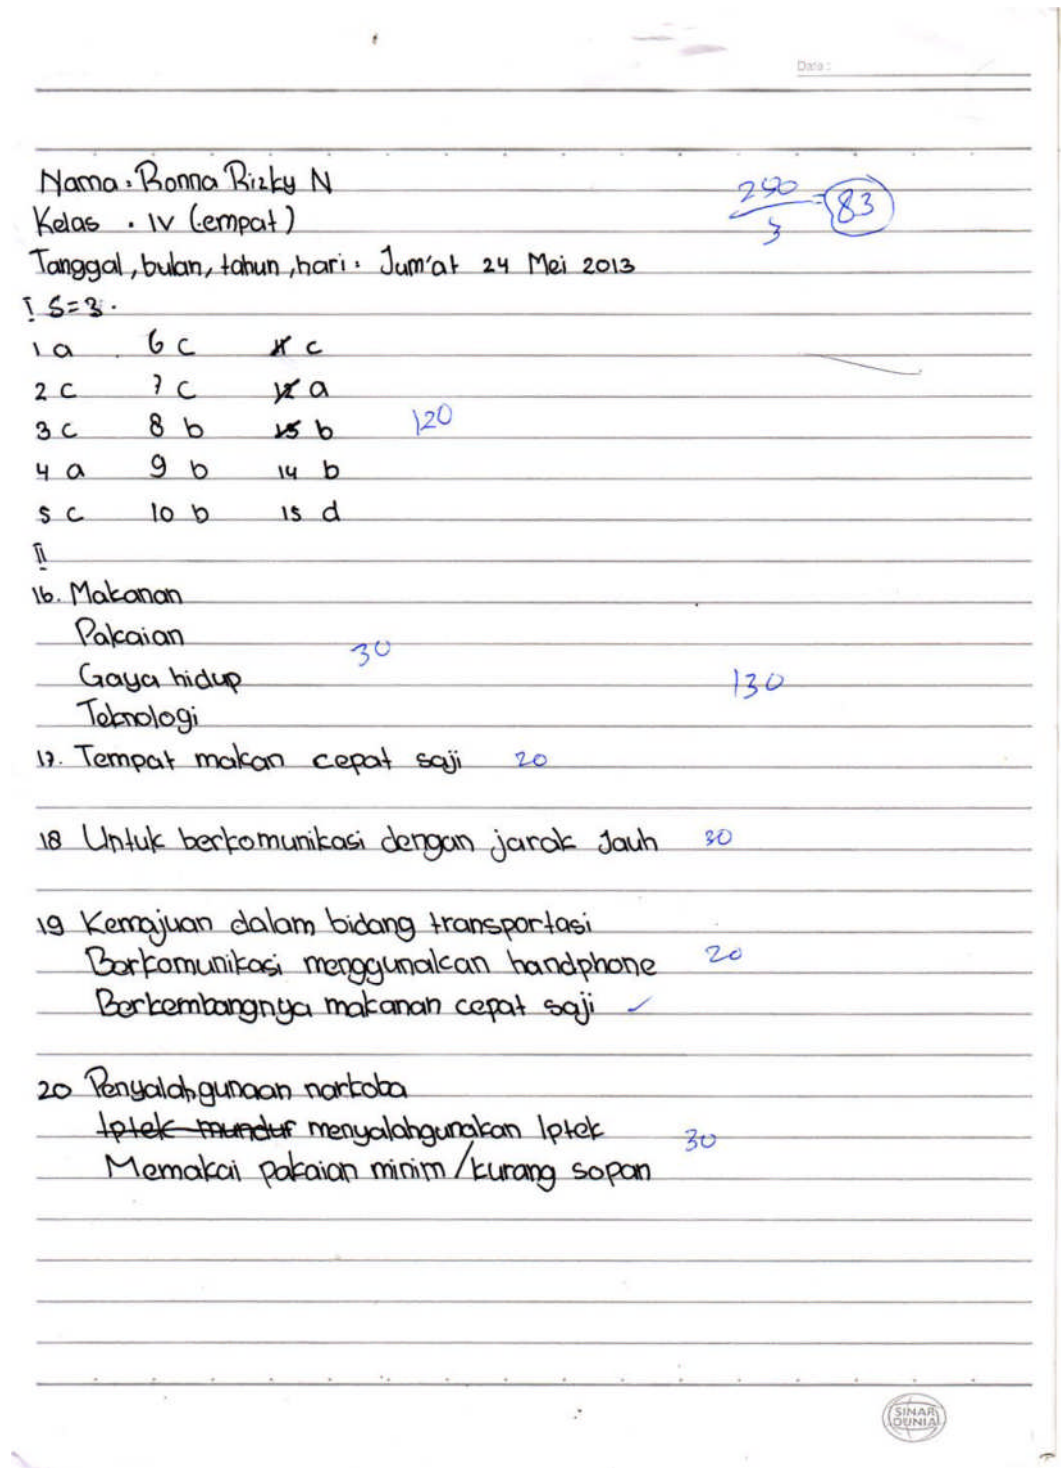 Date :
Nama : Ronna Rizky N
250/3 = 83
Kelas . IV (empat)
Tanggal, bulan, tahun, hari : Jum'at 24 Mei 2013
I S=3.
1 a 6 c 11 c
2 c 7 c 12 a
3 c 8 b 13 b 120
4 a 9 b 14 b
5 c 10 b 15 d
II
16. Makanan
Pakaian
30
Gaya hidup 130
Teknologi
17. Tempat makan cepat saji 20
18 Untuk berkomunikasi dengan jarak Jauh 30
19 Kemajuan dalam bidang transportasi
Berkomunikasi menggunakan handphone 20
Berkembangnya makanan cepat saji ✓
20 Penyalahgunaan narkoba
Iptek mundur menyalahgunakan Iptek 30
Memakai pakaian minim/kurang sopan
SINAR DUNIA